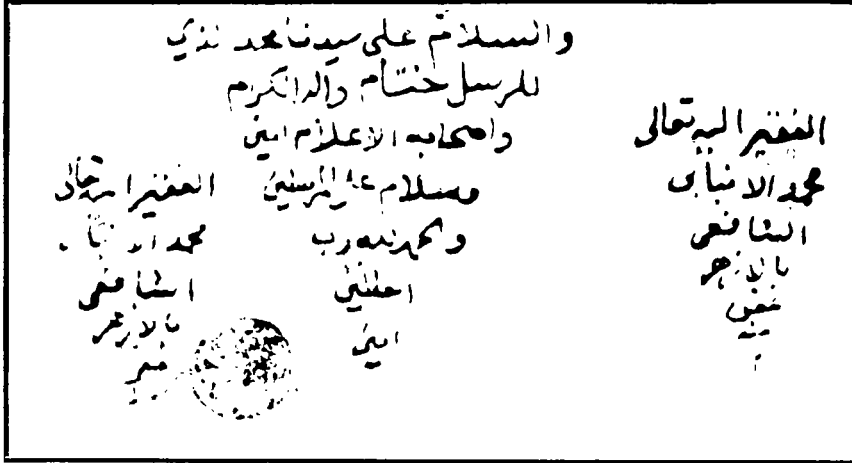 والسلام على سيدنا محمد الذي
للرسل ختام والد الكرام
واصحابه الاعلام امين
وسلام على المرسلين
والحمد لله رب
امين
الفقير اليه تعالى
محمد الانبابى
الشافعى
بالازهر
الفقير اليه تعالى
محمد
الشافعى
بالازهر